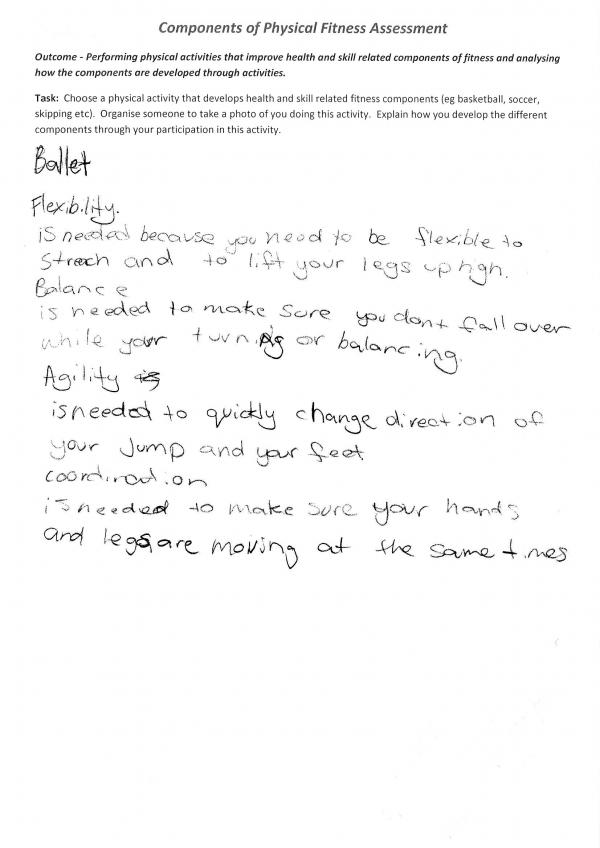 Components of Physical Fitness Assessment
Outcome - Performing physical activities that improve health and skill related components of fitness and analysing
how the components are developed through activities.
Task: Choose a physical activity that develops health and skill related fitness components (eg basketball, soccer,
skipping etc). Organise someone to take a photo of you doing this activity. Explain how you develop the different
components through your participation in this activity.
Ballet
Flexibility.
is needed because you need to be flexible to
strech and to lift your legs up high.
Balance
is needed to make sure you dont fall over
while your turning or balancing.
Agility is
is needed to quickly change direction of
your Jump and your feet
coordination
is needed to make sure your hands
and legs are moving at the same times